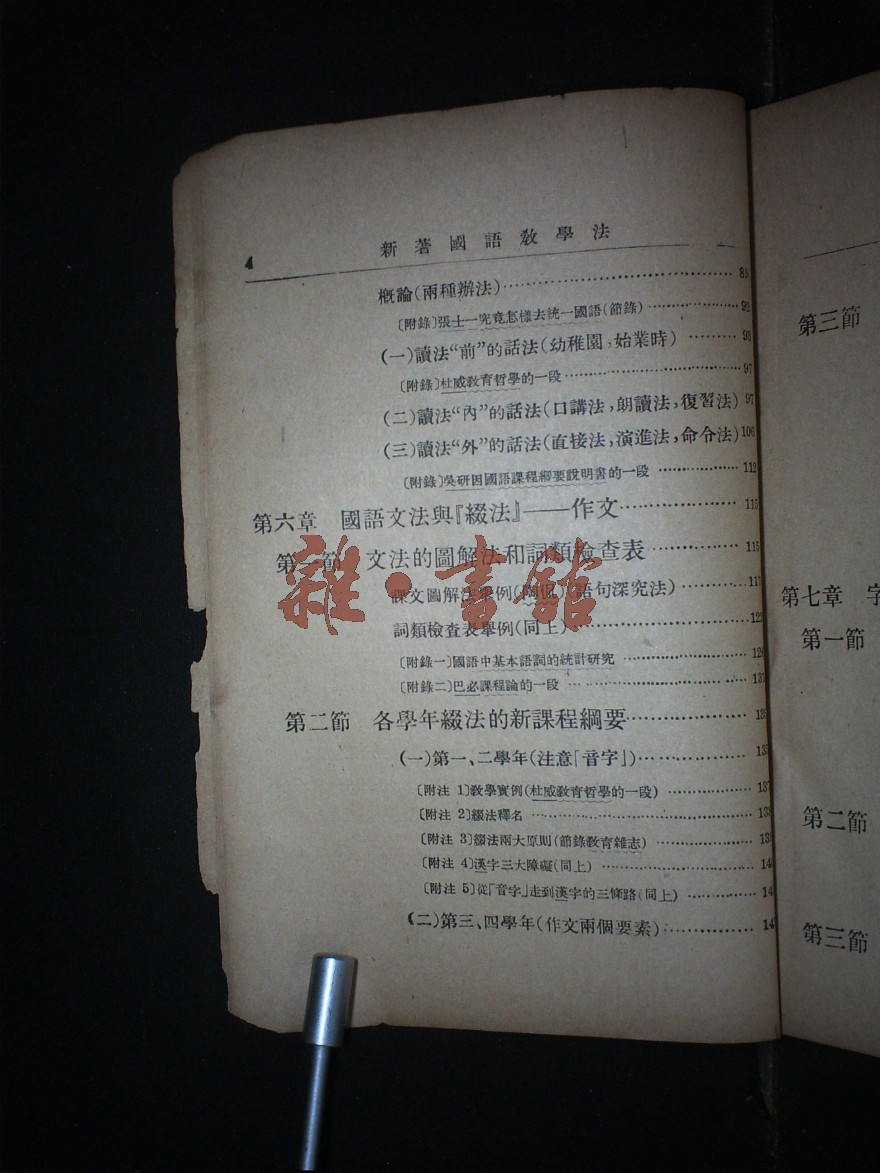 4
新著國語教學法
概論(兩種辦法)……88
〔附錄〕張士一究竟怎樣去統一國語(節錄)……92
(一)讀法“前”的話法(幼稚園,始業時)……93
〔附錄〕杜威教育哲學的一段……97
(二)讀法“內”的話法(口講法,朗讀法,復習法)97
(三)讀法“外”的話法(直接法,演進法,命令法)106
〔附錄〕吳研因國語課程綱要說明書的一段……112
第六章 國語文法與『綴法』——作文……115
第一節 文法的圖解法和詞類檢查表……115
課文圖解法舉例(陶侃)(語句深究法)……117
詞類檢查表舉例(同上)……122
〔附錄一〕國語中基本語詞的統計研究……
〔附錄二〕巴必課程論的一段……131
第二節 各學年綴法的新課程綱要……
(一)第一、二學年(注意「音字」)……135
〔附注 1〕教學實例(杜威教育哲學的一段)……137
〔附注 2〕綴法釋名……
〔附注 3〕綴法兩大原則(節錄教育雜志)……
〔附注 4〕漢字三大障礙(同上)……
〔附注 5〕從「音字」走到漢字的三條路(同上)……
(二)第三、四學年(作文兩個要素)……
第三節
第七章 字
第一節
第二節
第三節
雜·書館